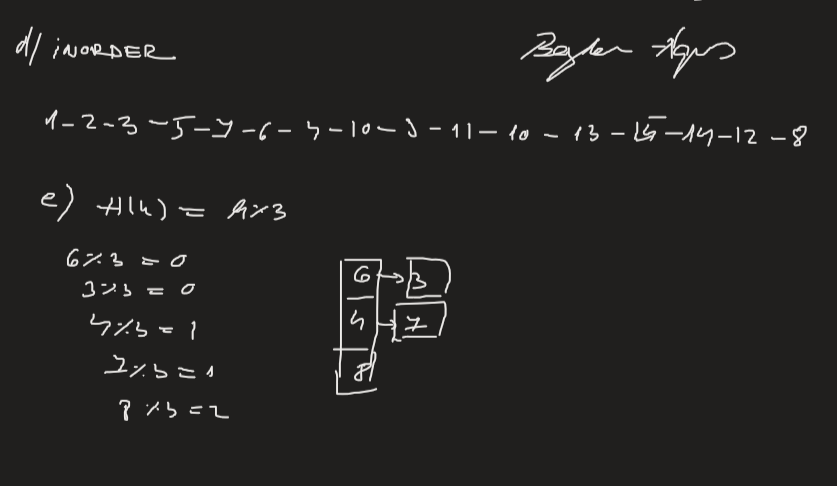 d/ INORDER
1-2-3-5-7-6-4-10-9-11-10-13-15-14-12-8
e) H(k) = k%3
6%3 = 0
3%3 = 0
4%3 = 1
7%3 = 1
8%3 = 2
6 → 3
4 → 7
8